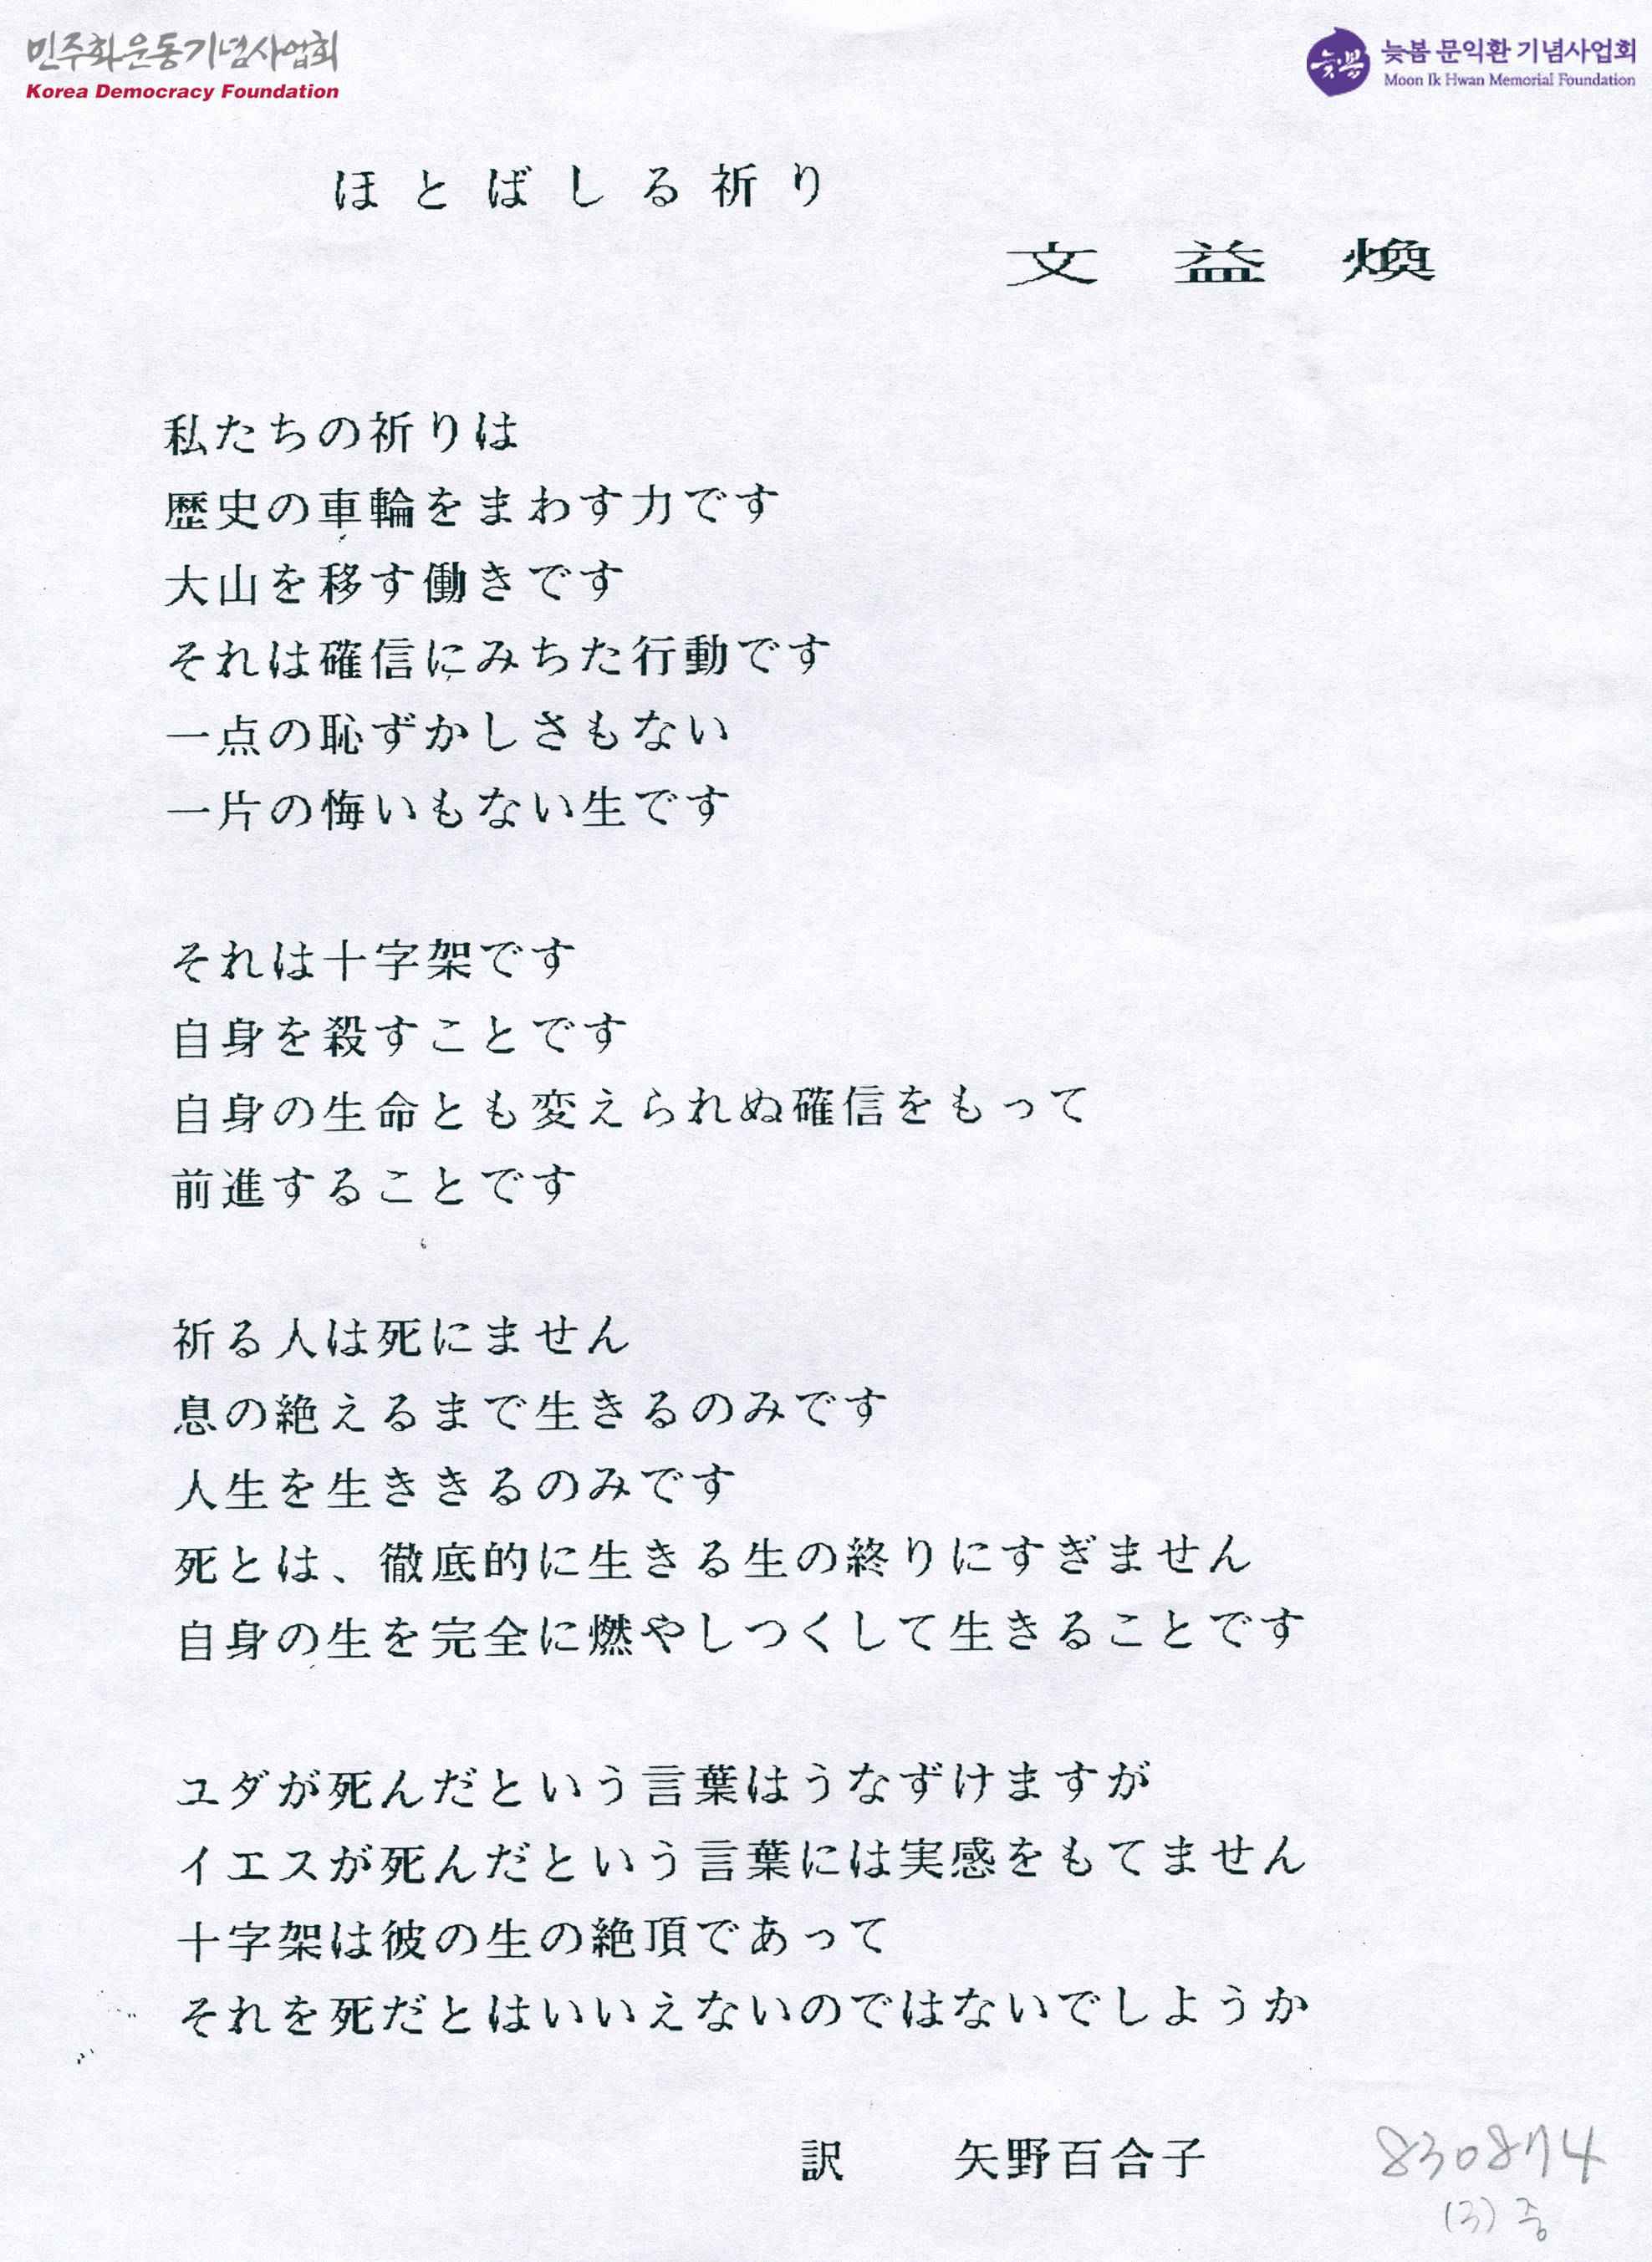 민주화운동기념사업회
Korea Democracy Foundation
늦봄
늦봄 문익환 기념사업회
Moon Ik Hwan Memorial Foundation
ほとばしる祈り
文益煥
私たちの祈りは
歴史の車輪をまわす力です
大山を移す働きです
それは確信にみちた行動です
一点の恥ずかしさもない
一片の悔いもない生です
それは十字架です
自身を殺すことです
自身の生命とも変えられぬ確信をもって
前進することです
祈る人は死にません
息の絶えるまで生きるのみです
人生を生ききるのみです
死とは、徹底的に生きる生の終りにすぎません
自身の生を完全に燃やしつくして生きることです
ユダが死んだという言葉はうなずけますが
イエスが死んだという言葉には実感をもてません
十字架は彼の生の絶頂であって
それを死だとはいいえないのではないでしようか
訳 矢野百合子
830874
(3) 중